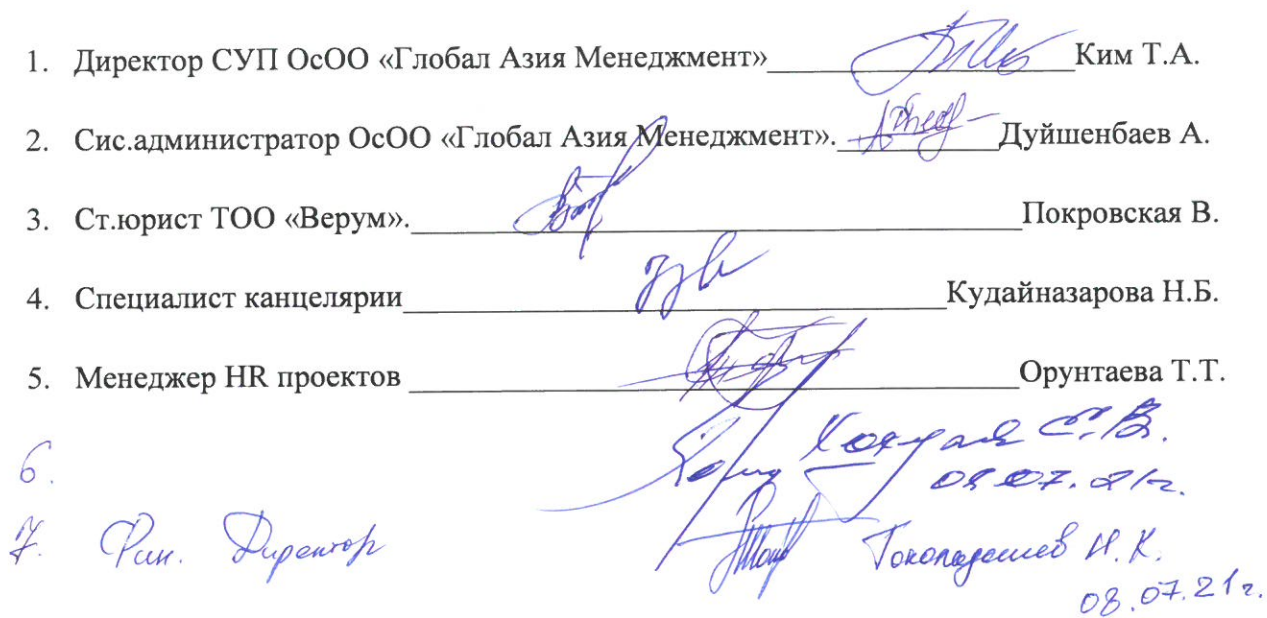 1. Директор СУП ОсОО «Глобал Азия Менеджмент»____Ким Т.А.
2. Сис.администратор ОсОО «Глобал Азия Менеджмент».____Дуйшенбаев А.
3. Ст.юрист ТОО «Верум».____Покровская В.
4. Специалист канцелярии____Кудайназарова Н.Б.
5. Менеджер HR проектов ____Орунтаева Т.Т.
6. С.В.
08.07.21г.
7. Фин. Директор Н.К.
08.07.21г.